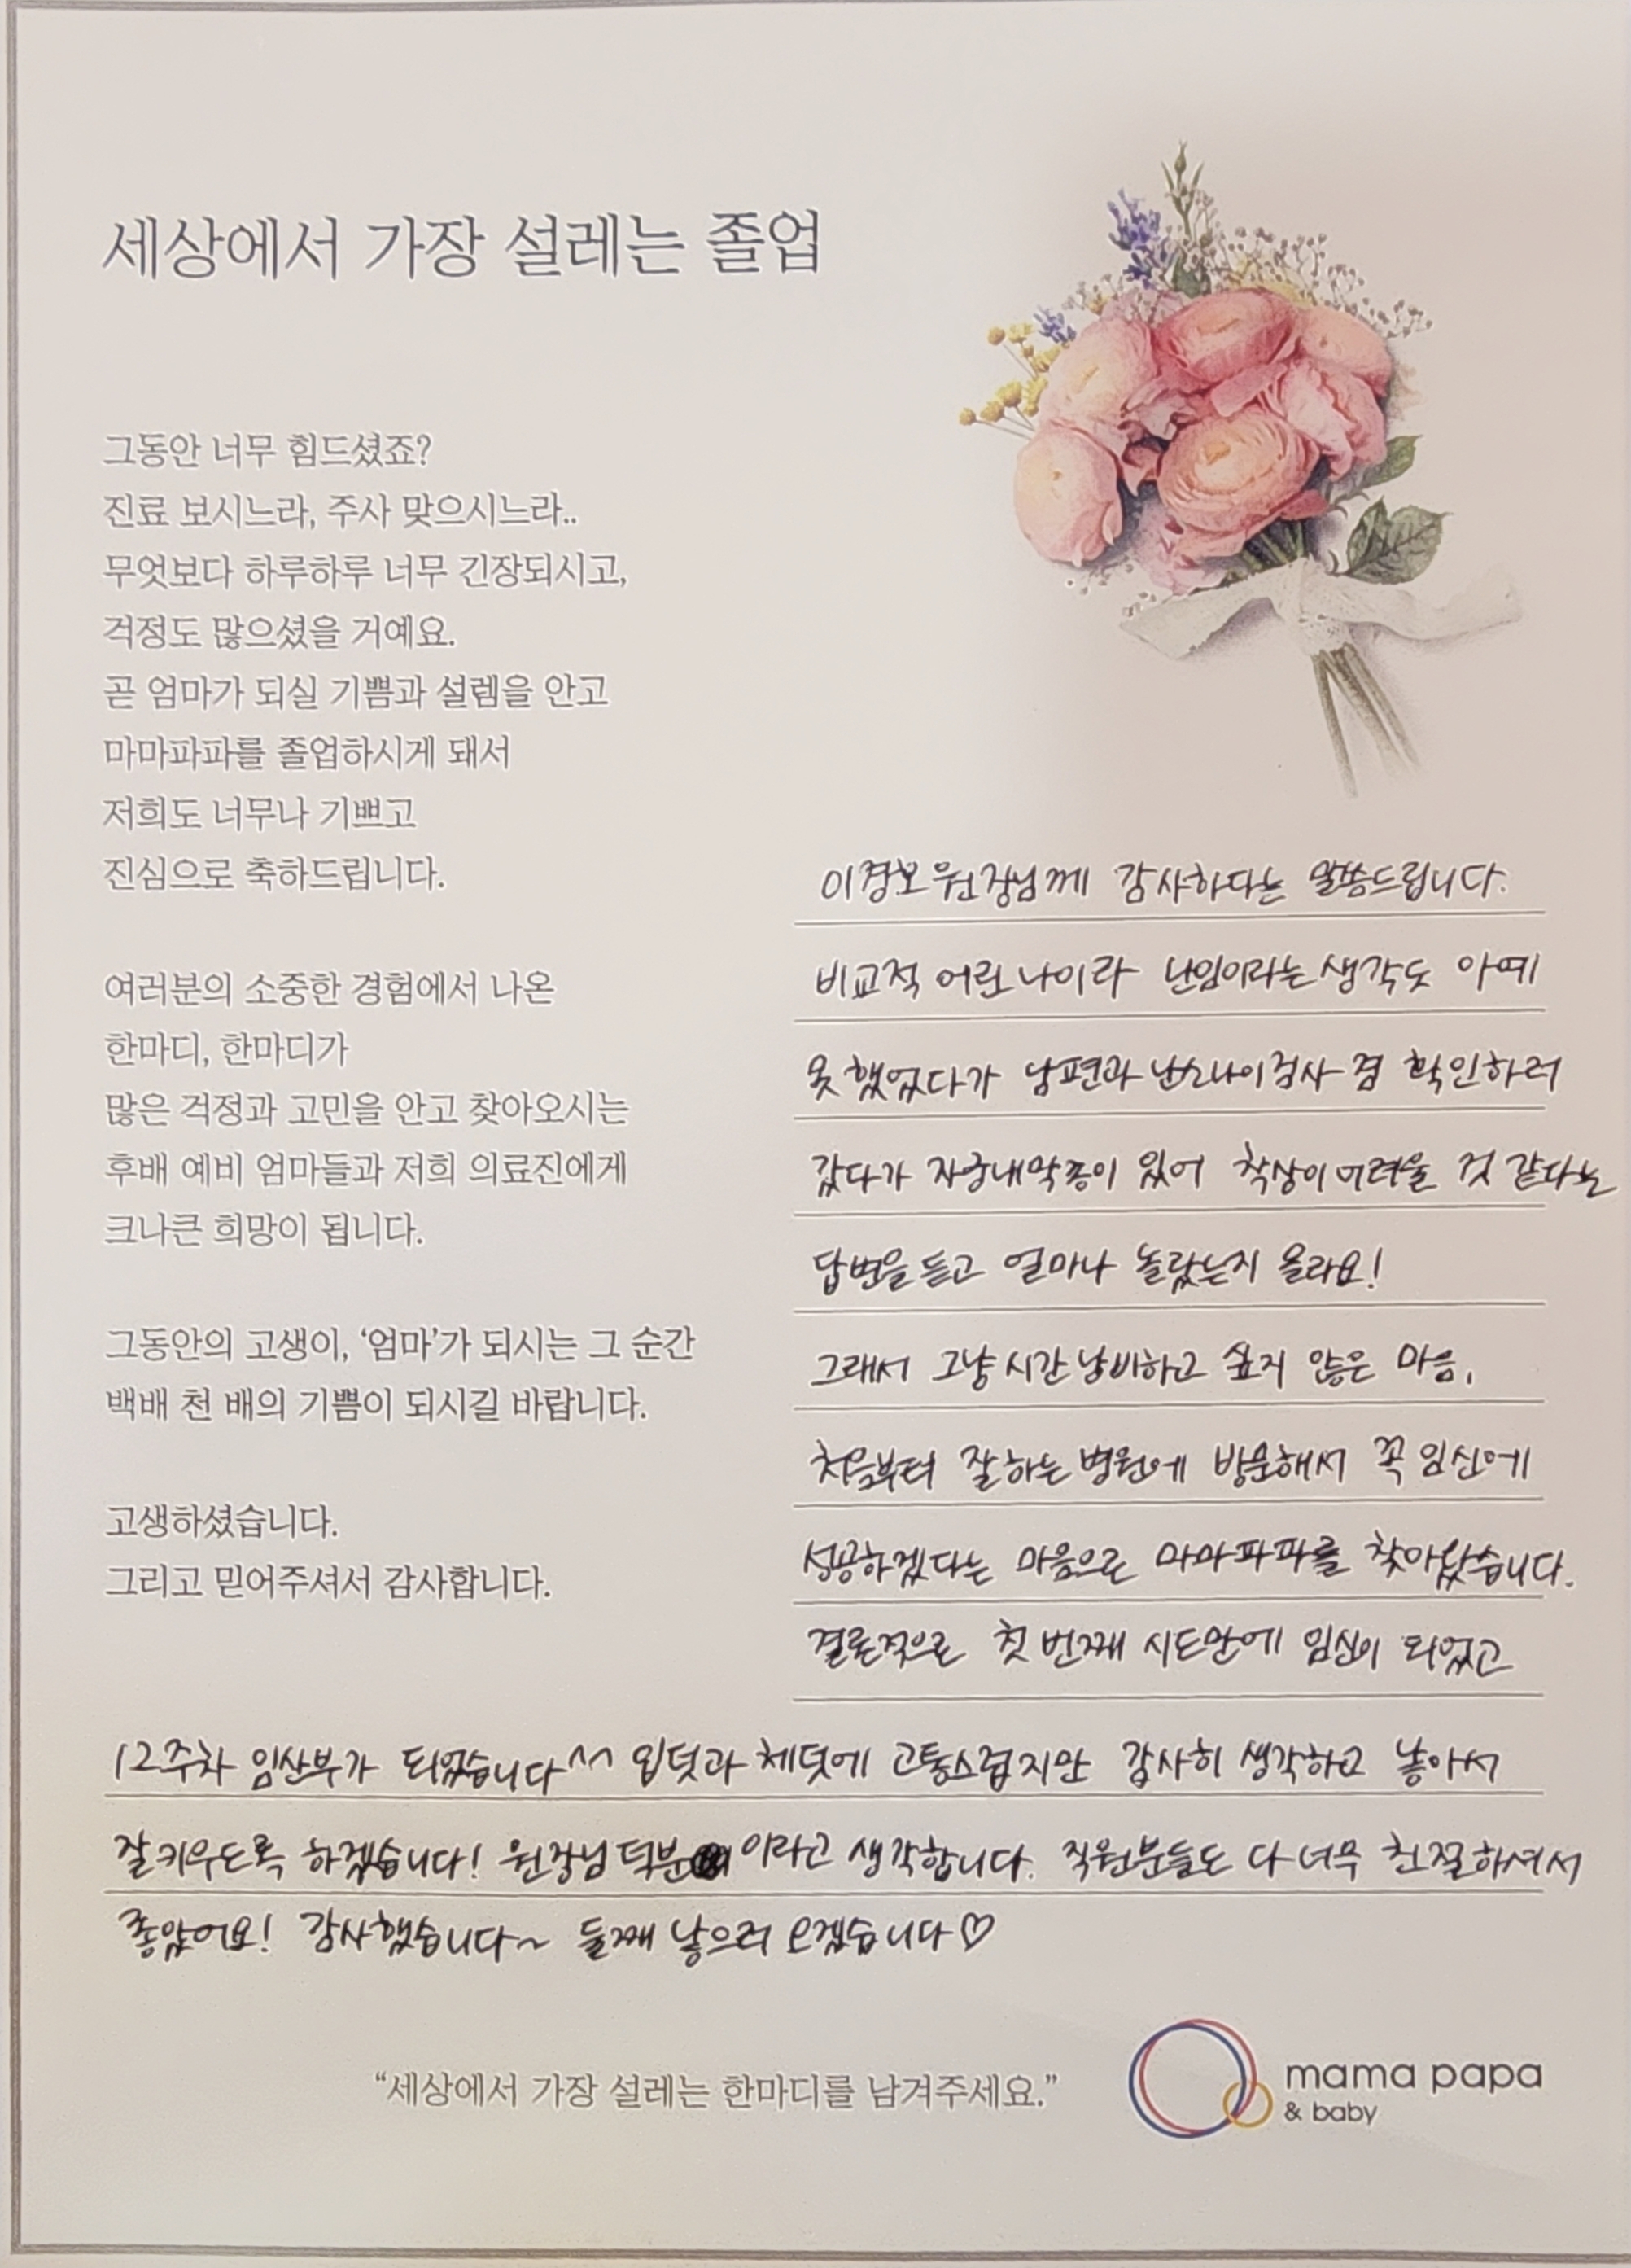 세상에서 가장 설레는 졸업
그동안 너무 힘드셨죠?
진료 보시느라, 주사 맞으시느라..
무엇보다 하루하루 너무 긴장되시고,
걱정도 많으셨을 거예요.
곧 엄마가 되실 기쁨과 설렘을 안고
마마파파를 졸업하시게 돼서
저희도 너무나 기쁘고
진심으로 축하드립니다.
여러분의 소중한 경험에서 나온
한마디, 한마디가
많은 걱정과 고민을 안고 찾아오시는
후배 예비 엄마들과 저희 의료진에게
크나큰 희망이 됩니다.
그동안의 고생이, ‘엄마’가 되시는 그 순간
백배 천 배의 기쁨이 되시길 바랍니다.
고생하셨습니다.
그리고 믿어주셔서 감사합니다.
이경보 원장님께 감사하다는 말씀드립니다.
비교적 어린 나이라 난임이라는 생각도 아예
못 했었다가 남편과 난소나이검사 겸 확인하러
갔다가 자궁내막종이 있어 착상이 어려울 것 같다는
답변을 듣고 얼마나 놀랐는지 몰라요!
그래서 그냥 시간 낭비하고 싶지 않은 마음,
처음부터 잘하는 병원에 방문해서 꼭 임신에
성공하겠다는 마음으로 마마파파를 찾아왔습니다.
결론적으로 첫 번째 시도만에 임신이 되었고
12주차 임산부가 되었습니다^^ 입덧과 체덧에 고통스럽지만 감사히 생각하고 낳아서
잘 키우도록 하겠습니다! 원장님 덕분 이라고 생각합니다. 직원분들도 다 너무 친절하셔서
좋았어요! 감사했습니다~ 둘째 낳으러 오겠습니다♡
“세상에서 가장 설레는 한마디를 남겨주세요.”
mama papa
& baby